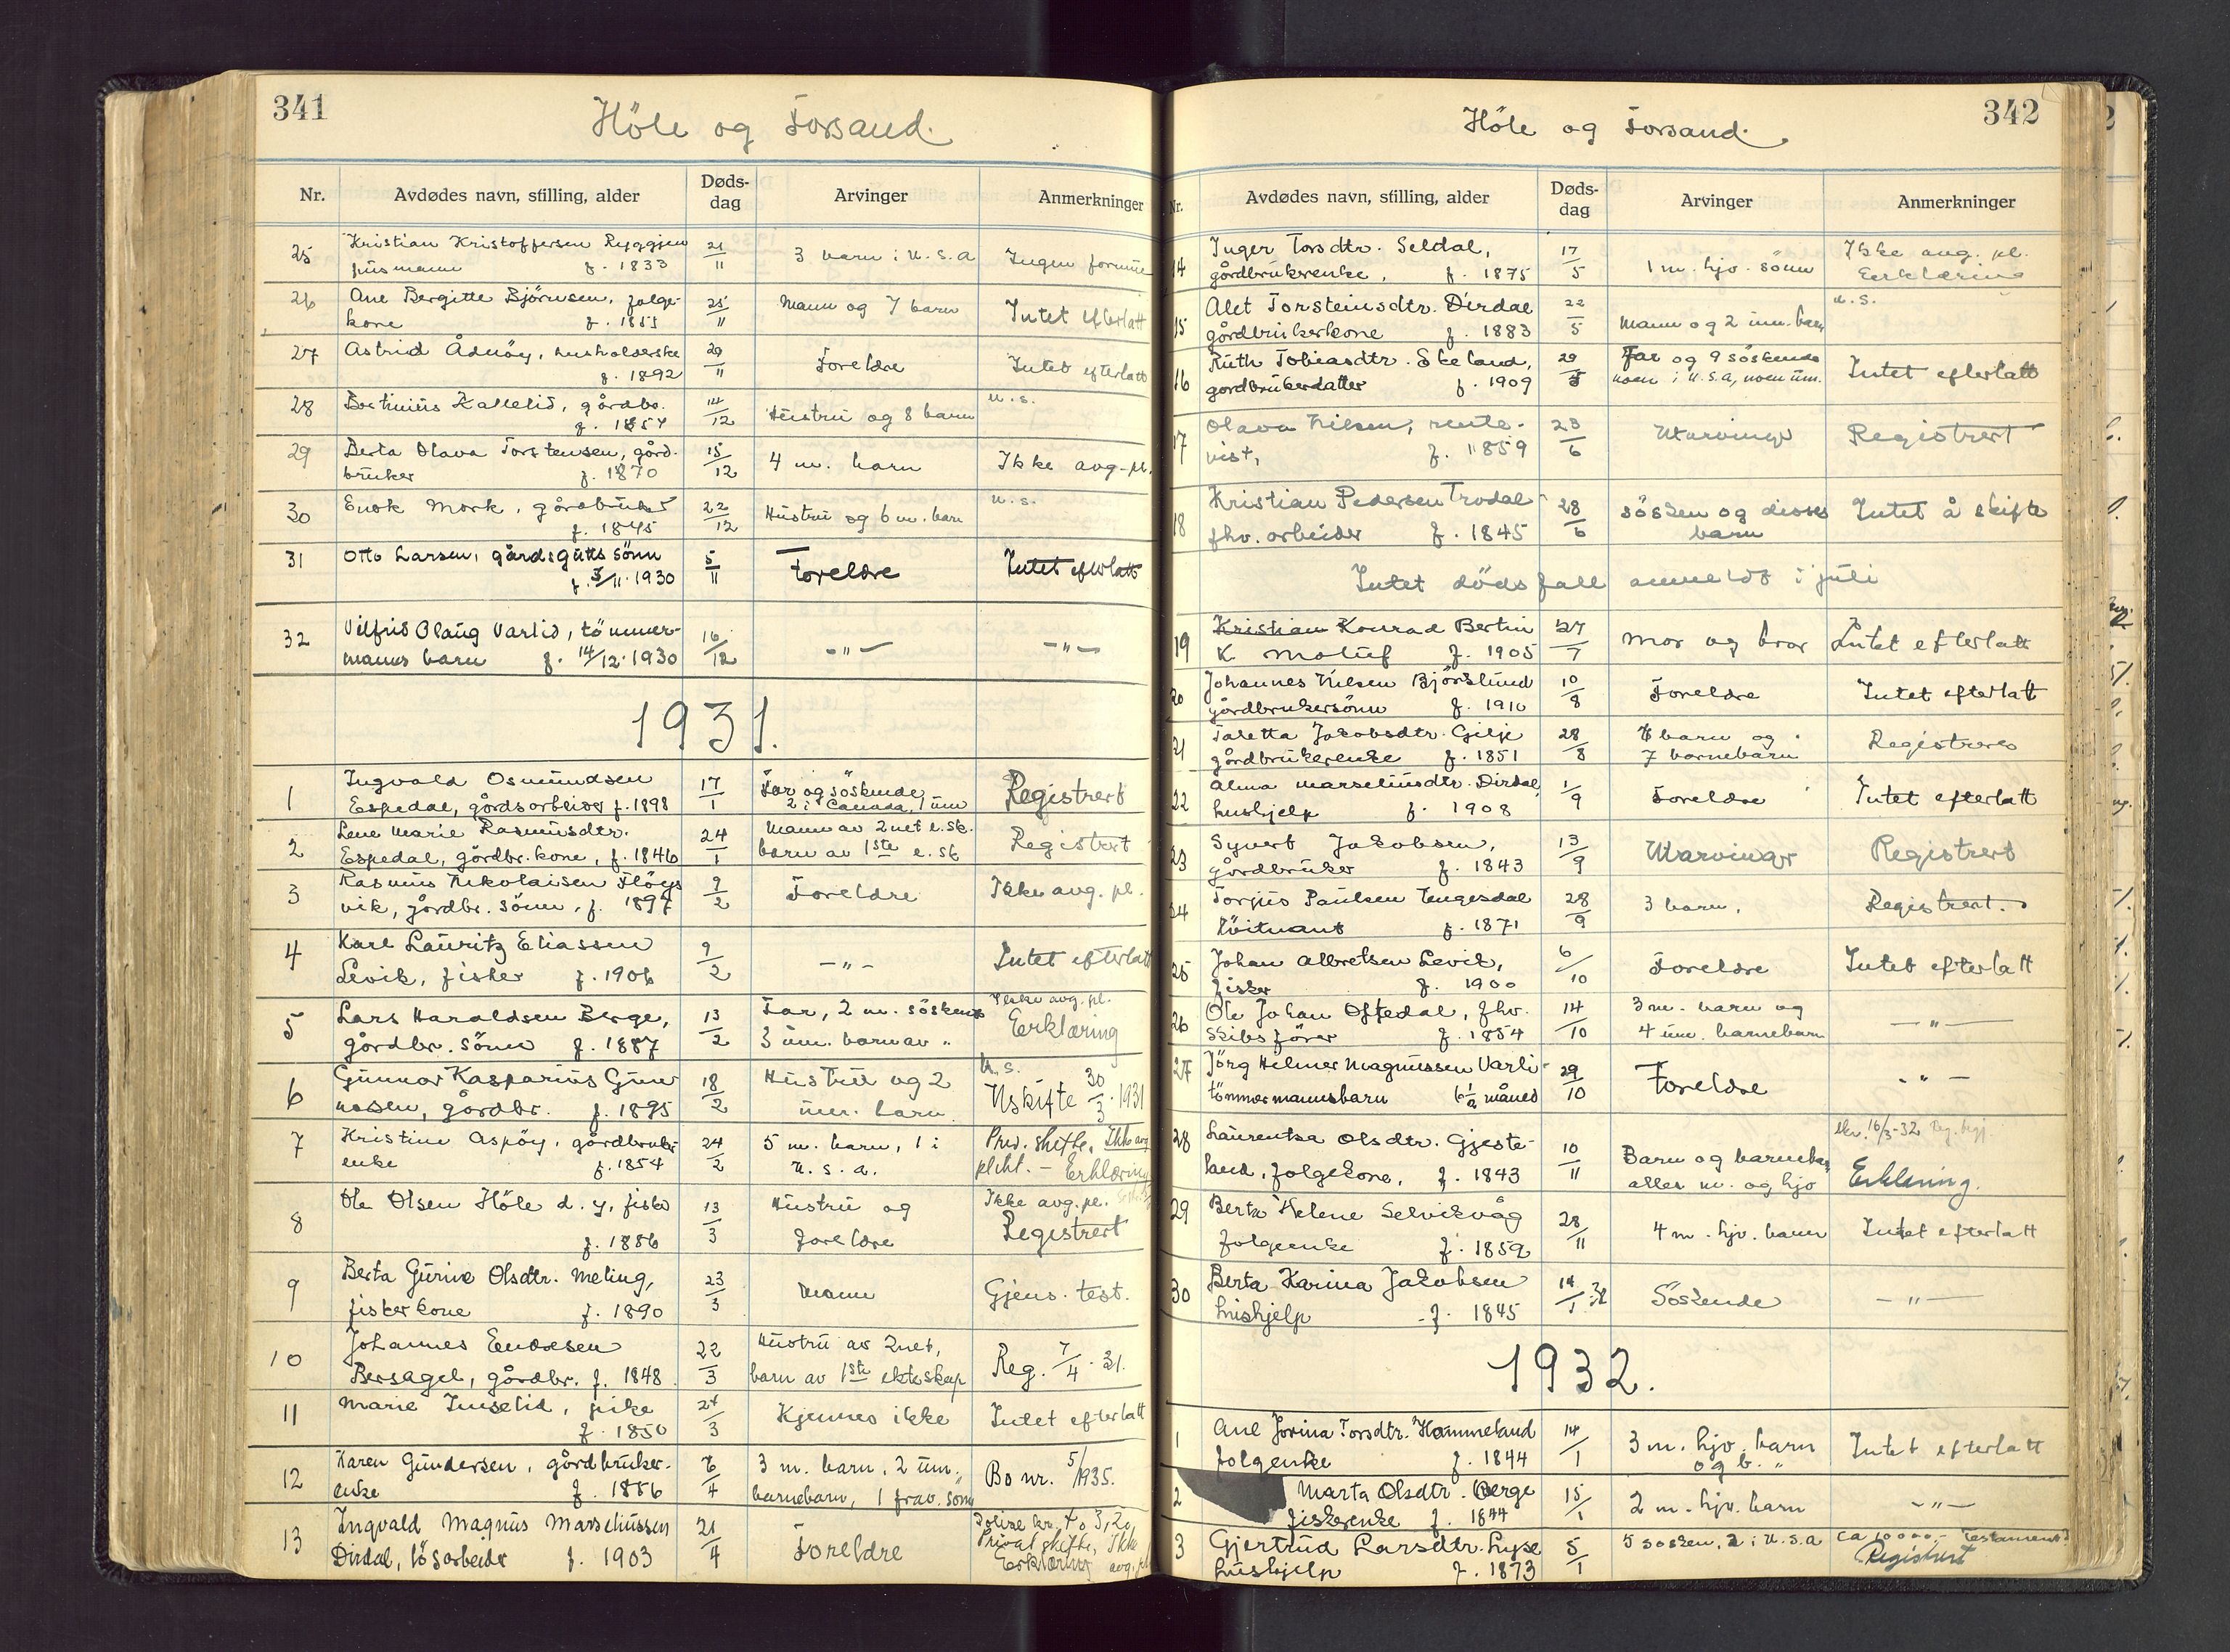 341
Höle og Forsand.
Nr. Avdødes navn, stilling, alder Døds-dag Arvinger Anmerkninger
25 Kristian Kristoffersen f. 1833 21/11 3 barn i U.S.A Ingen formue
26 Ane Bergitte Björnsen, folge-
kone f. 1855 25/11 Mann og 7 barn Intet efterlatt
27 Astrid Ådnöy, husholderske
f. 1892 29/11 Foreldre Intet efterlatt
28 Bertinius Kallelid, gårdbr.
f. 1857 14/12 Hustru og 8 barn u.s.
29 Berta Olava Torstensen, gård-
bruker f. 1870 15/12 4 m. barn Ikke avg. pl.
30 Enok Mork, gårdbruker
f. 1845 22/12 Hustru og 6 m. barn u.s.
31 Otto Larsen, gårdsgutts sönn
f. 3/11 1930 5/11 Foreldre Intet efterlatt
32 Vilfrid Olaug Varlid, tömmer-
manns barn f. 14/12 1930 16/12 -"- -"-
1931.
1 Ingvald Osmundsen
Espedal, gårdsarbeider f. 1898 17/1 Far og söskende, 2 i Canada, 1 um Registrert
2 Lene Marie Rasmusdtr.
Espedal, gårdbr. kone, f. 1846 24/1 Mann av 2net e.sk. barn av 1ste e.sk Registrert
3 Rasmus Nikolaisen Flöys
vik, gårdbr. sönn, f. 1897 9/2 Foreldre Ikke avg. pl.
4 Karl Lauritz Eliassen
Levik, fisker f. 1906 9/2 -"- Intet efterlatt
5 Lars Haraldsen Berge,
gårdbr. sönn f. 1887 13/2 Far, 2 m. söskende 3 um. barn av " Ikke avg. pl. Erklæring
6 Gunnar Kasparius Gun
nassen, gårdbr. f. 1895 18/2 Hustru og 2 um. barn U.s. Uskifte 30/3 1931
7 Kristine Aspöy, gårdbruker
enke f. 1854 24/2 5 m. barn, 1 i U.S.A. Priv. skifte, Ikke avg plikt. - Erklæring
8 Ole Olsen Höle d. y, fisker
f. 1886 13/3 Hustru og foreldre Ikke avg. pl. Registrert
9 Berta Gurine Olsdtr. Meling,
fiskerkone f. 1890 23/3 Mann Gjens. test.
10 Johannes Endresen
Bersagel, gårdbr. f. 1848 22/3 Hustru av 2net, barn av 1ste ekteskap Reg. 7/4 31.
11 Marie Imselid, pike
f. 1850 24/3 Kjennes ikke Intet efterlatt
12 Karen Gundersen, gårdbruker-
enke f. 1886 6/4 3 m. barn, 2 um. barnebarn, 1 frav. sönn Bo nr. 5/1935.
13 Ingvald Magnus Marseliussen
Dirdal, lösarbeider f. 1903 21/4 Foreldre Privat skifte, Ikke Erklæring avg. pl
342
Höle og Forsand.
Nr. Avdødes navn, stilling, alder Døds-dag Arvinger Anmerkninger
14 Inger Torsdtr. Seldal,
gårdbrukerenke, f. 1875 17/5 1 m. hjv. sönn Ikke avg. pl. Erklæring
15 Alet Torsteinsdtr. Dirdal
gårdbrukerkone f. 1883 22/5 Mann og 2 um. barn u.s.
16 Ruth Tobiasdtr. Skeland,
gårdbrukerdatter f. 1909 29/5 Far og 9 söskende noen i U.S.A, noen um. Intet efterlatt
17 Olava Nilsen, rente-
nist, f. 1859 23/6 Utarvinger Registrert
18 Kristian Pedersen Trodal
fhv. arbeider f. 1845 28/6 Sösken og disses barn Intet å skifte
Intet dödsfall anmeldt i juli
19 Kristian Konrad Bertin
K. Moluf f. 1905 27/7 Mor og bror Intet efterlatt
20 Johannes Nilsen Björslund
gårdbrukersönn f. 1910 10/8 Foreldre Intet efterlatt
21 Taletta Jakobsdtr. Gilje
gårdbrukerenke f. 1851 28/8 barn og 7 barnebarn Registreres
22 Alma Marseliusdtr. Dirdal,
hushjelp f. 1908 1/9 Foreldre Intet efterlatt
23 Syvert Jakobsen,
gårdbruker f. 1843 13/9 Utarvinger Registrert
24 Torjus Paulsen Eugesdal
löitnant f. 1871 28/9 3 barn, Registrert.
25 Johan Albretsen Levik,
fisker f. 1900 6/10 Foreldre Intet efterlatt
26 Ole Johan Oftedal, fhv.
skibsförer f. 1854 14/10 3 m. barn og 4 um. barnebarn -"-
27 Jörg Helmer Magnussen Varli-
tömmermannsbarn 6 1/2 måned 29/10 Foreldre -"-
28 Laurentsa Olsdtr. Gjeste-
land, folgekone, f. 1843 10/11 Barn og barnebarn alle m. og hjv 16/3-32 Erklæring.
29 Berta Helene Selvikvåg
folgeenke f. 1859 28/11 4 m. hjv. barn Intet efterlatt
30 Berta Karina Jakobsen
hushjelp f. 1845 14/1 32 Söskende -"-
1932.
1 Ane Jorina Torsdtr. Hommeland
folgenke f. 1844 14/1 3 m. hjv. barn og b. " Intet efterlatt
2 Marta Olsdtr. Berge
fiskerenke f. 1844 15/1 2 m. hjv. barn -"-
3 Gjertrud Larsdtr. Lyse
hushjelp f. 1873 5/1 5 sösken, 2 i U.S.A ca 10000,- testament? Registrert